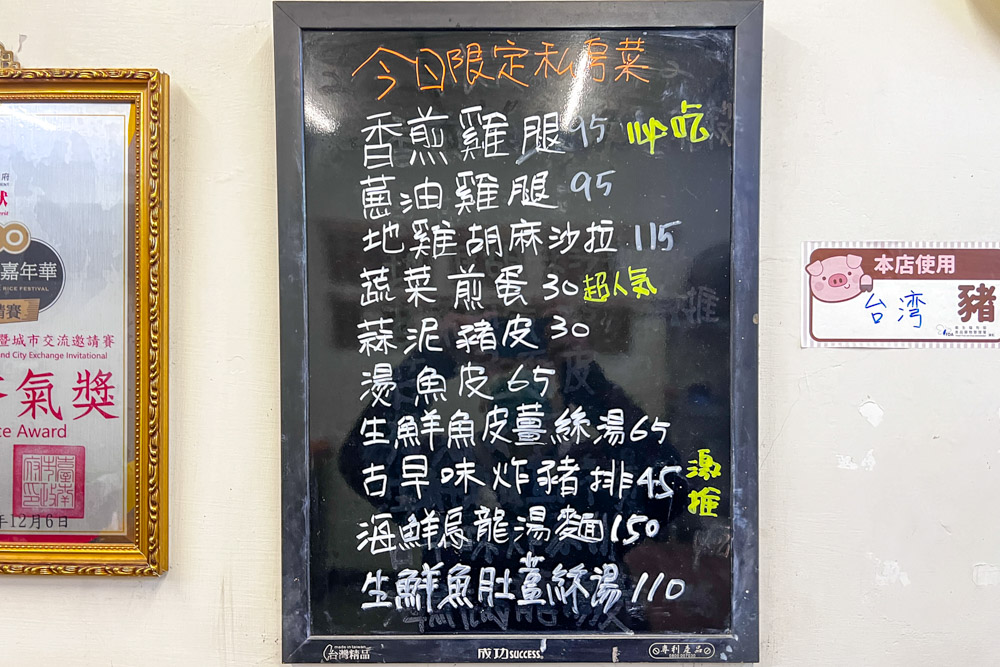 今日限定私房菜
香煎雞腿 95 必吃
蔥油雞腿 95
地雞胡麻沙拉 115
蔬菜煎蛋 30 超人氣
蒜泥豬皮 30
湯魚皮 65
生鮮魚皮薑絲湯 65
古早味炸豬排 45 激推
海鮮烏龍湯麵 150
生鮮魚肚薑絲湯 110
made in taiwan
台灣精品
成功 SUCCESS
專利產品
嘉年華
RICE FESTIVAL
請賽
暨城市交流邀請賽
nd City Exchange Invitational
氣獎
ce Award
年12月6日
本店使用
台湾
豬